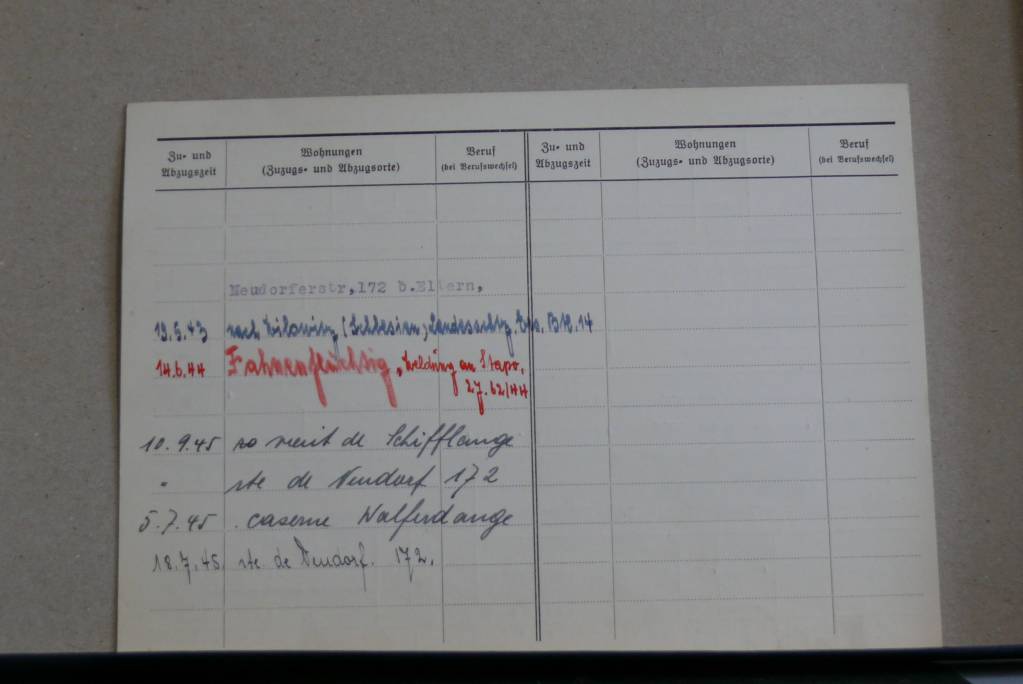 Zu- und
Abzugszeit
Wohnungen
(Zuzugs- und Abzugsorte)
Beruf
(bei Berufswechsel)
Zu- und
Abzugszeit
Wohnungen
(Zuzugs- und Abzugsorte)
Beruf
(bei Berufswechsel)
Neudorferstr,172 b.Eltern,
19.5.43 nach (Schlesien) Btl. 14
14.6.44 Fahnenflüchtig, Meldung an Stapo,
10.9.45 vient de Schifflange
" rte de Neudorf 172
5.7.45 . caserne Walferdange
18.7.45. rte de Neudorf. 172.